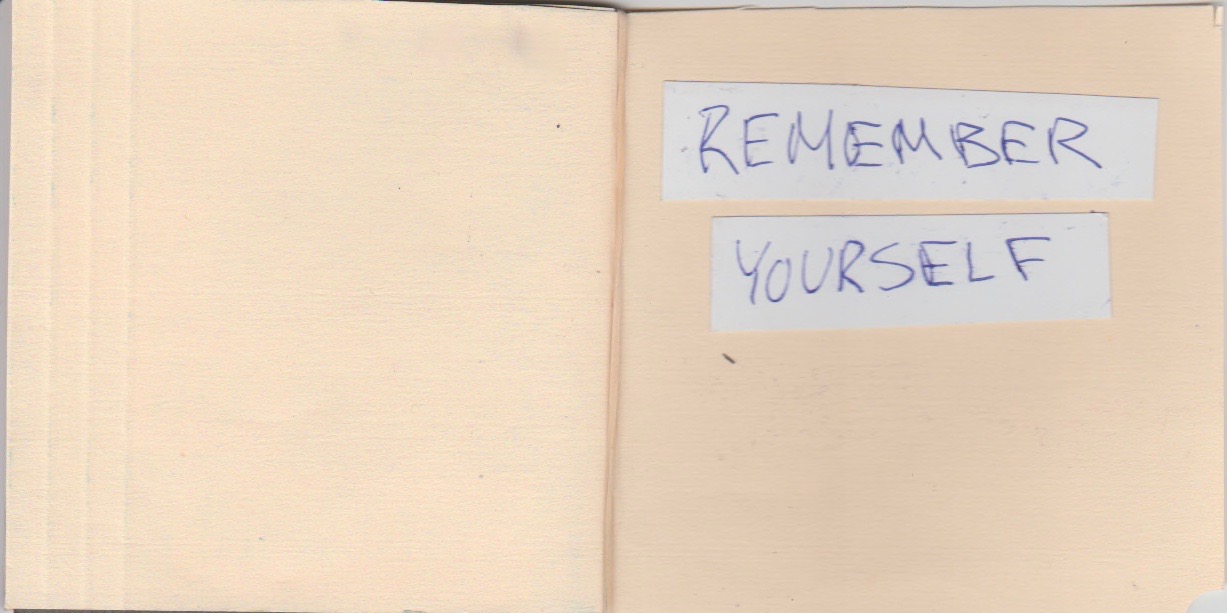 REMEMBER
YOURSELF